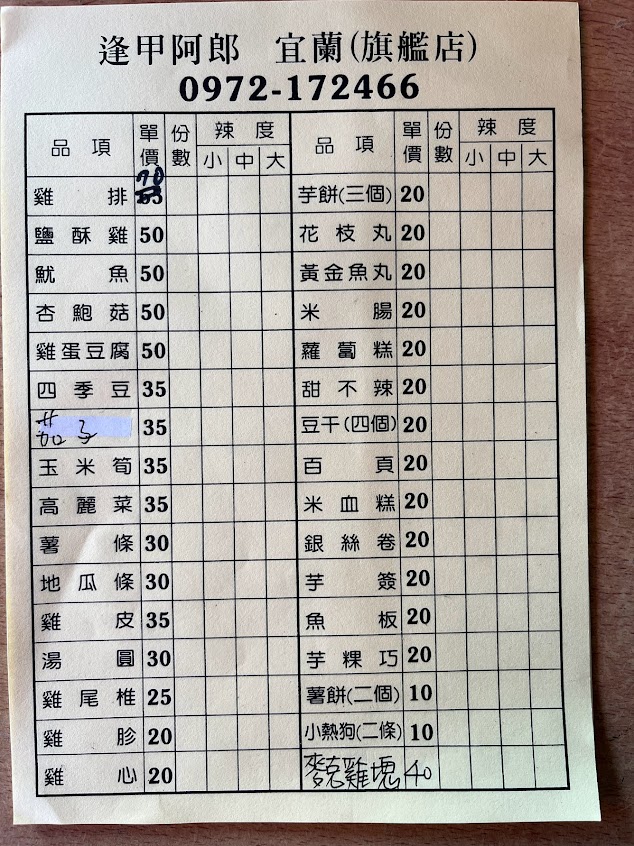 逢甲阿郎 宜蘭(旗艦店)
0972-172466
品項 單價 份數 辣度 小 中 大 品項 單價 份數 辣度 小 中 大
雞排 70 芋餅(三個) 20
鹽酥雞 50 花枝丸 20
魷魚 50 黃金魚丸 20
杏鮑菇 50 米腸 20
雞蛋豆腐 50 蘿蔔糕 20
四季豆 35 甜不辣 20
茄子 35 豆干(四個) 20
玉米筍 35 百頁 20
高麗菜 35 米血糕 20
薯條 30 銀絲卷 20
地瓜條 30 芋簽 20
雞皮 35 魚板 20
湯圓 30 芋粿巧 20
雞尾椎 25 薯餅(二個) 10
雞胗 20 小熱狗(二條) 10
雞心 20 麥克雞塊 40